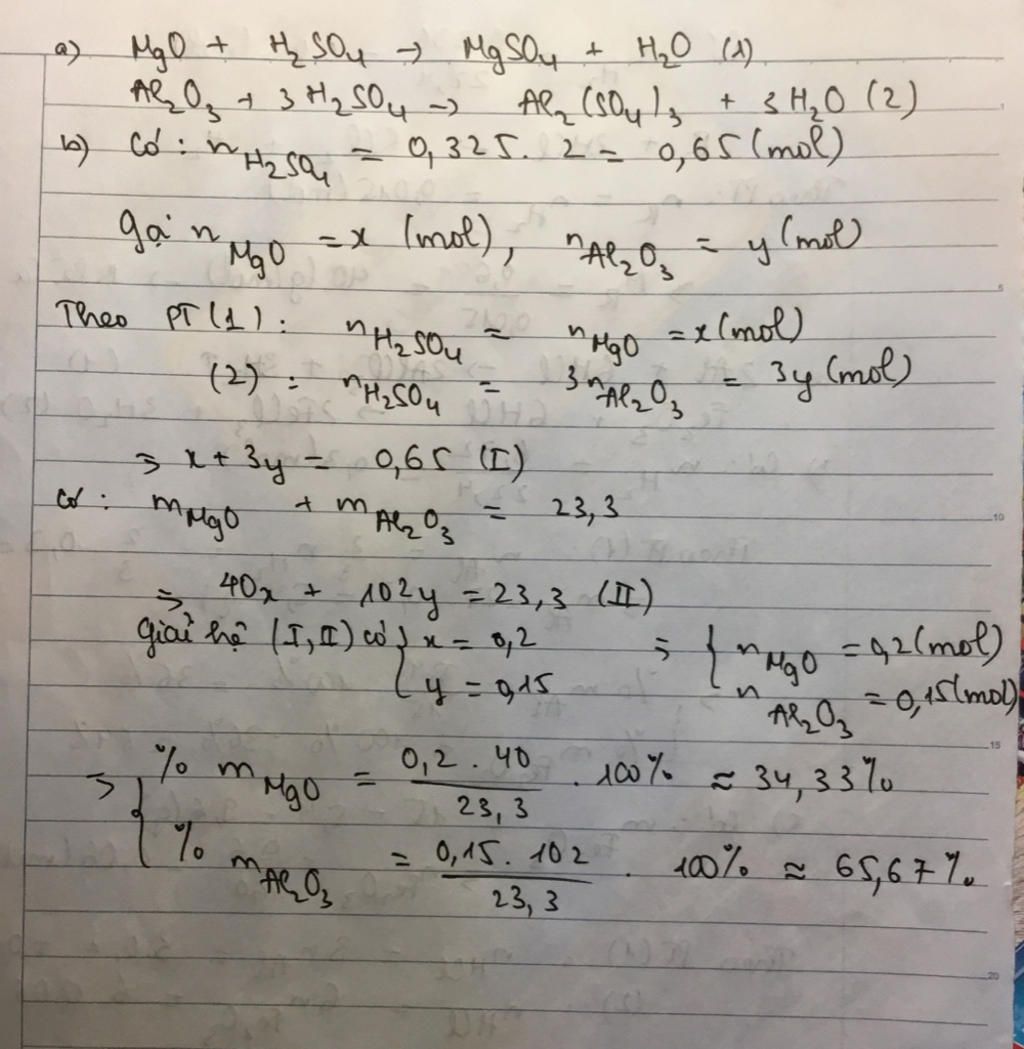 a) MgO + H₂SO₄ → MgSO₄ + H₂O (1)
Al₂O₃ + 3H₂SO₄ → Al₂(SO₄)₃ + 3H₂O (2)
b) Có: n H₂SO₄ = 0,325. 2 = 0,65 (mol)
Gọi n MgO = x (mol), n Al₂O₃ = y (mol)
Theo PT (1): n H₂SO₄ = n MgO = x (mol)
(2): n H₂SO₄ = 3n Al₂O₃ = 3y (mol)
⇒ x + 3y = 0,65 (I)
Có: m MgO + m Al₂O₃ = 23,3
⇒ 40x + 102y = 23,3 (II)
Giải hệ (I, II) có { x = 0,2 ⇒ { n MgO = 0,2 (mol)
y = 0,15 n Al₂O₃ = 0,15 (mol)
⇒ { % m MgO = 0,2 . 40 / 23,3 . 100% ≈ 34,33%
% m Al₂O₃ = 0,15. 102 / 23,3 . 100% ≈ 65,67%